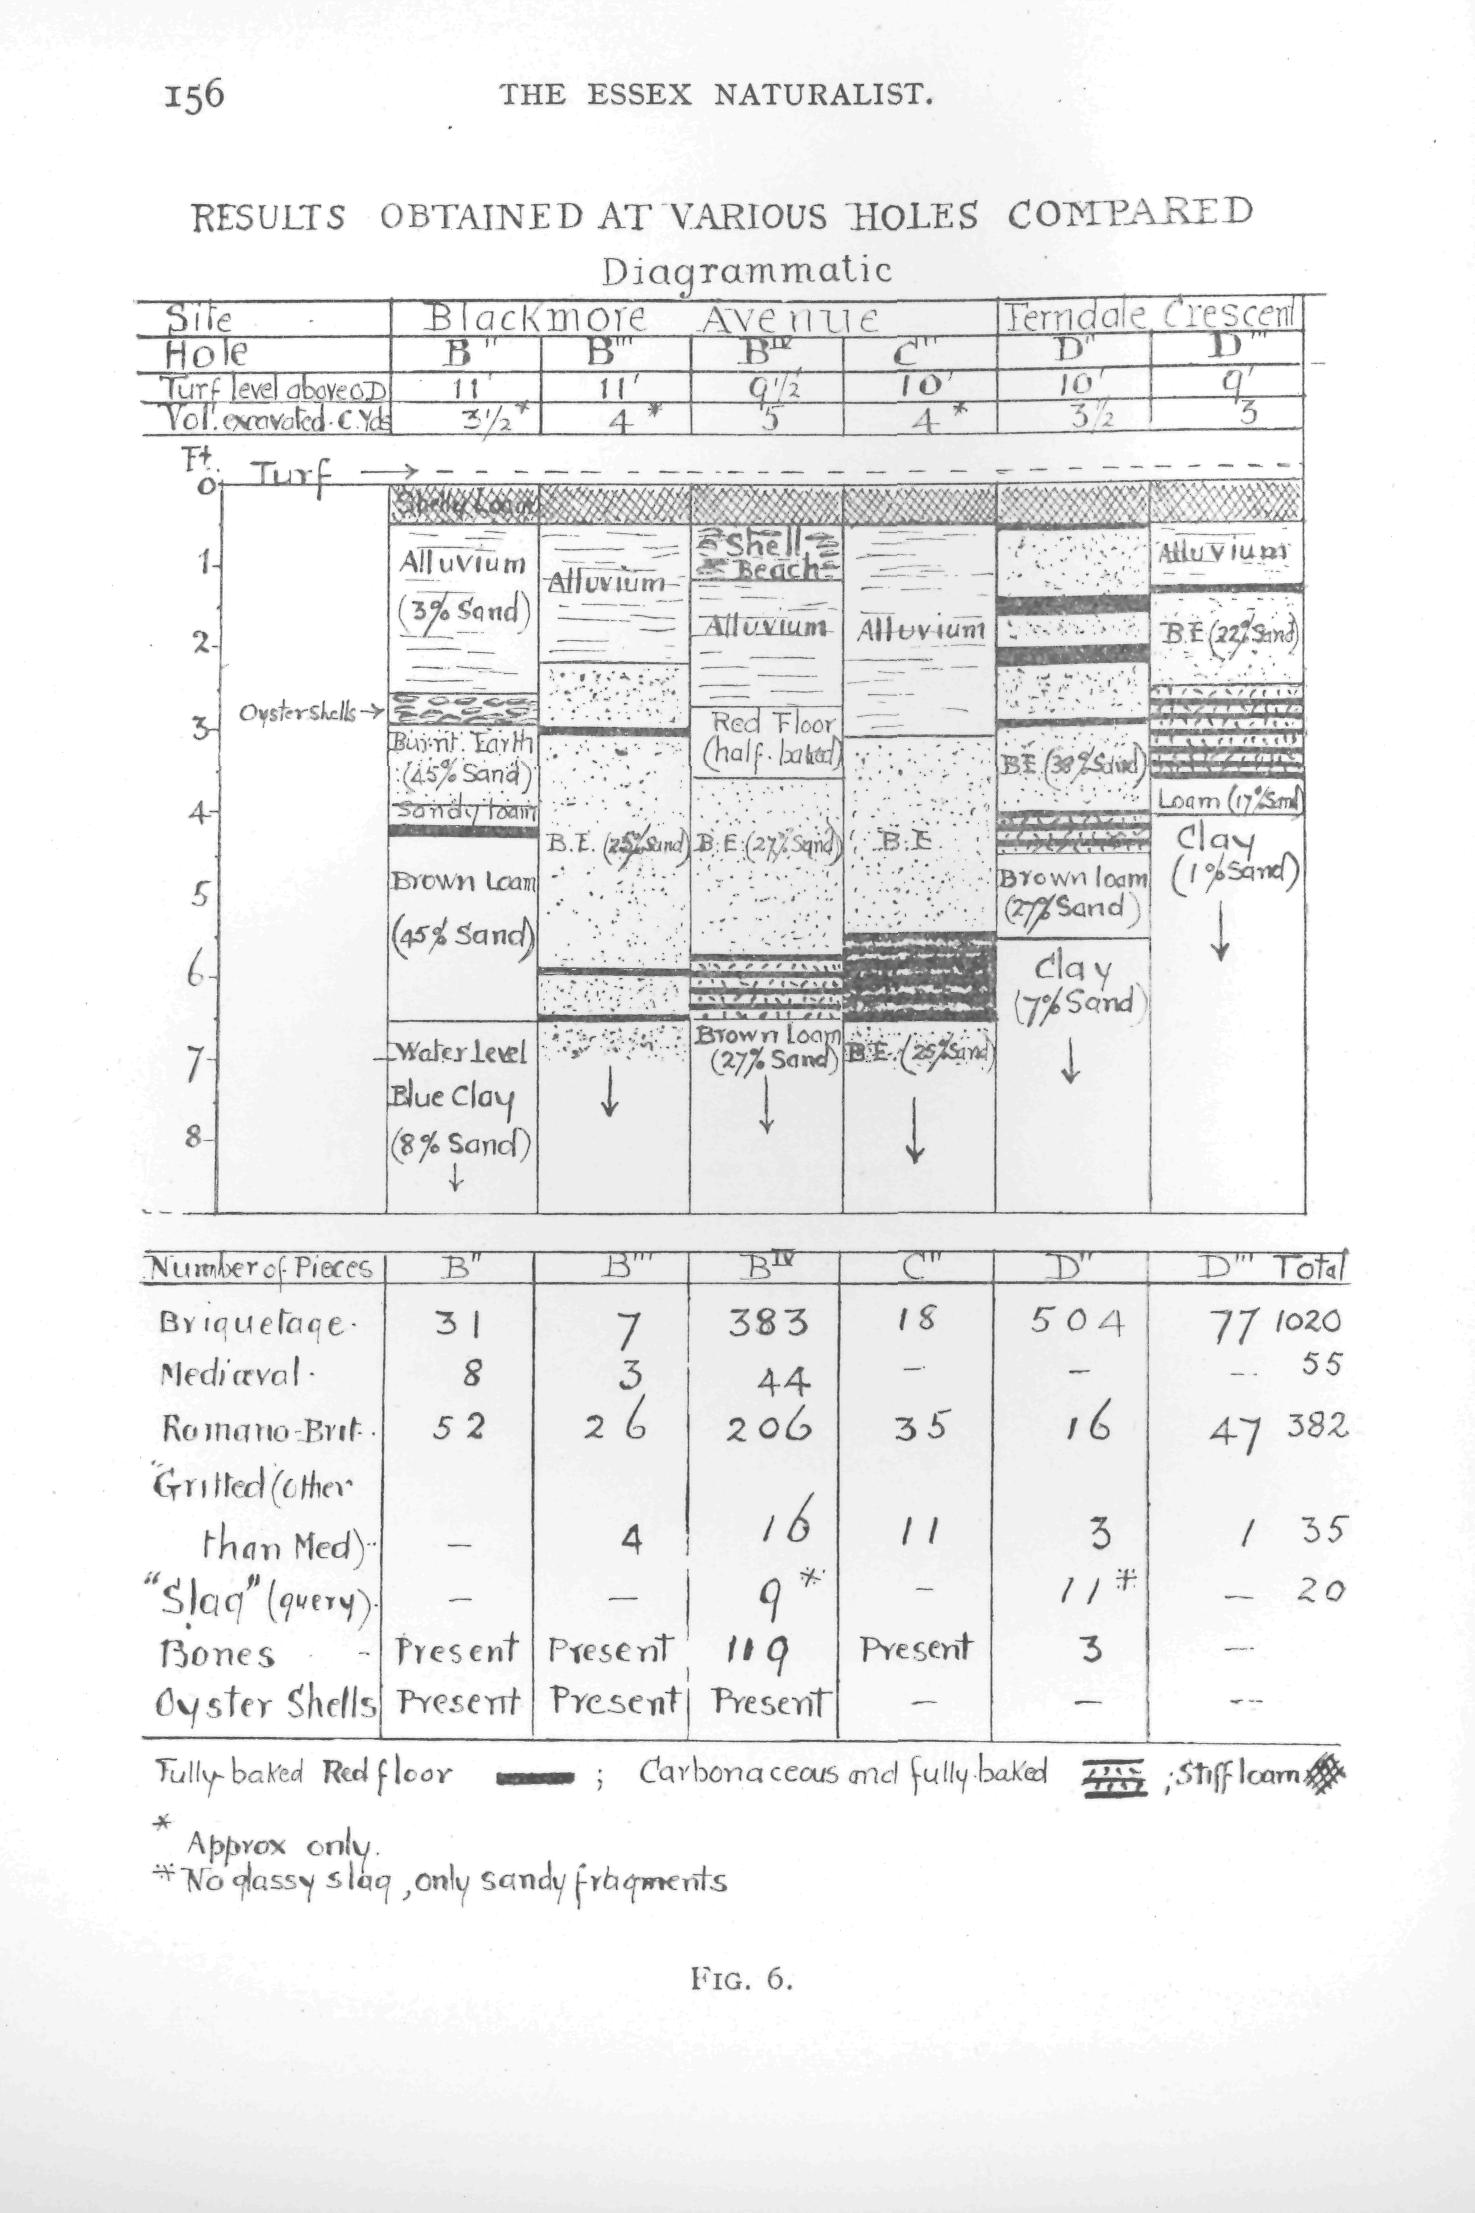 156 THE ESSEX NATURALIST.
RESULTS OBTAINED AT VARIOUS HOLES COMPARED
Diagrammatic
Site Blackmore Avenue Ferndale Crescent
Hole B" B"' Bᴵⱽ C"' D" D"'
Turf level above O.D 11' 11' 9½' 10' 10' 9'
Vol. excavated. C. Yds 3½* 4* 5 4* 3½ 3
Ft. Turf →
0
Shelly Loam
1 Alluvium Alluvium Shell Beach Alluvium
(3% Sand)
2 Alluvium Alluvium B.E (22% Sand)
Oyster shells →
3 Red Floor
Burnt Earth (half-baked)
(45% Sand) B E (38% Sand)
4 Sandy loam Loam (17% Sand)
B.E. (25% Sand) B.E. (27% Sand) B.E. Clay
5 Brown Loam Brown loam (1% Sand)
(27% Sand)
(45% Sand)
6 Clay
(7% Sand)
7 Water Level Brown Loam B.E. (25% Sand)
(27% Sand)
Blue Clay
8 (8% Sand)
Number of Pieces B" B"' Bᴵⱽ C"' D" D"' Total
Briquetage. 31 7 383 18 504 77 1020
Mediæval. 8 3 44 – – – 55
Romano-Brit. 52 26 206 35 16 47 382
"Gritted (other
than Med). – 4 16 11 3 1 35
"Slag" (query). – – 9※ – 11※ – 20
Bones - Present Present 119 Present 3 –
Oyster Shells Present Present Present – – –
Fully-baked Red floor ; Carbonaceous and fully-baked ; Stiff loam
* Approx only.
※ No glassy slag, only sandy fragments
FIG. 6.